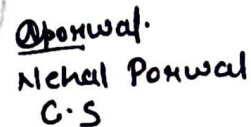 @porwal.
Nehal Porwal
C.S